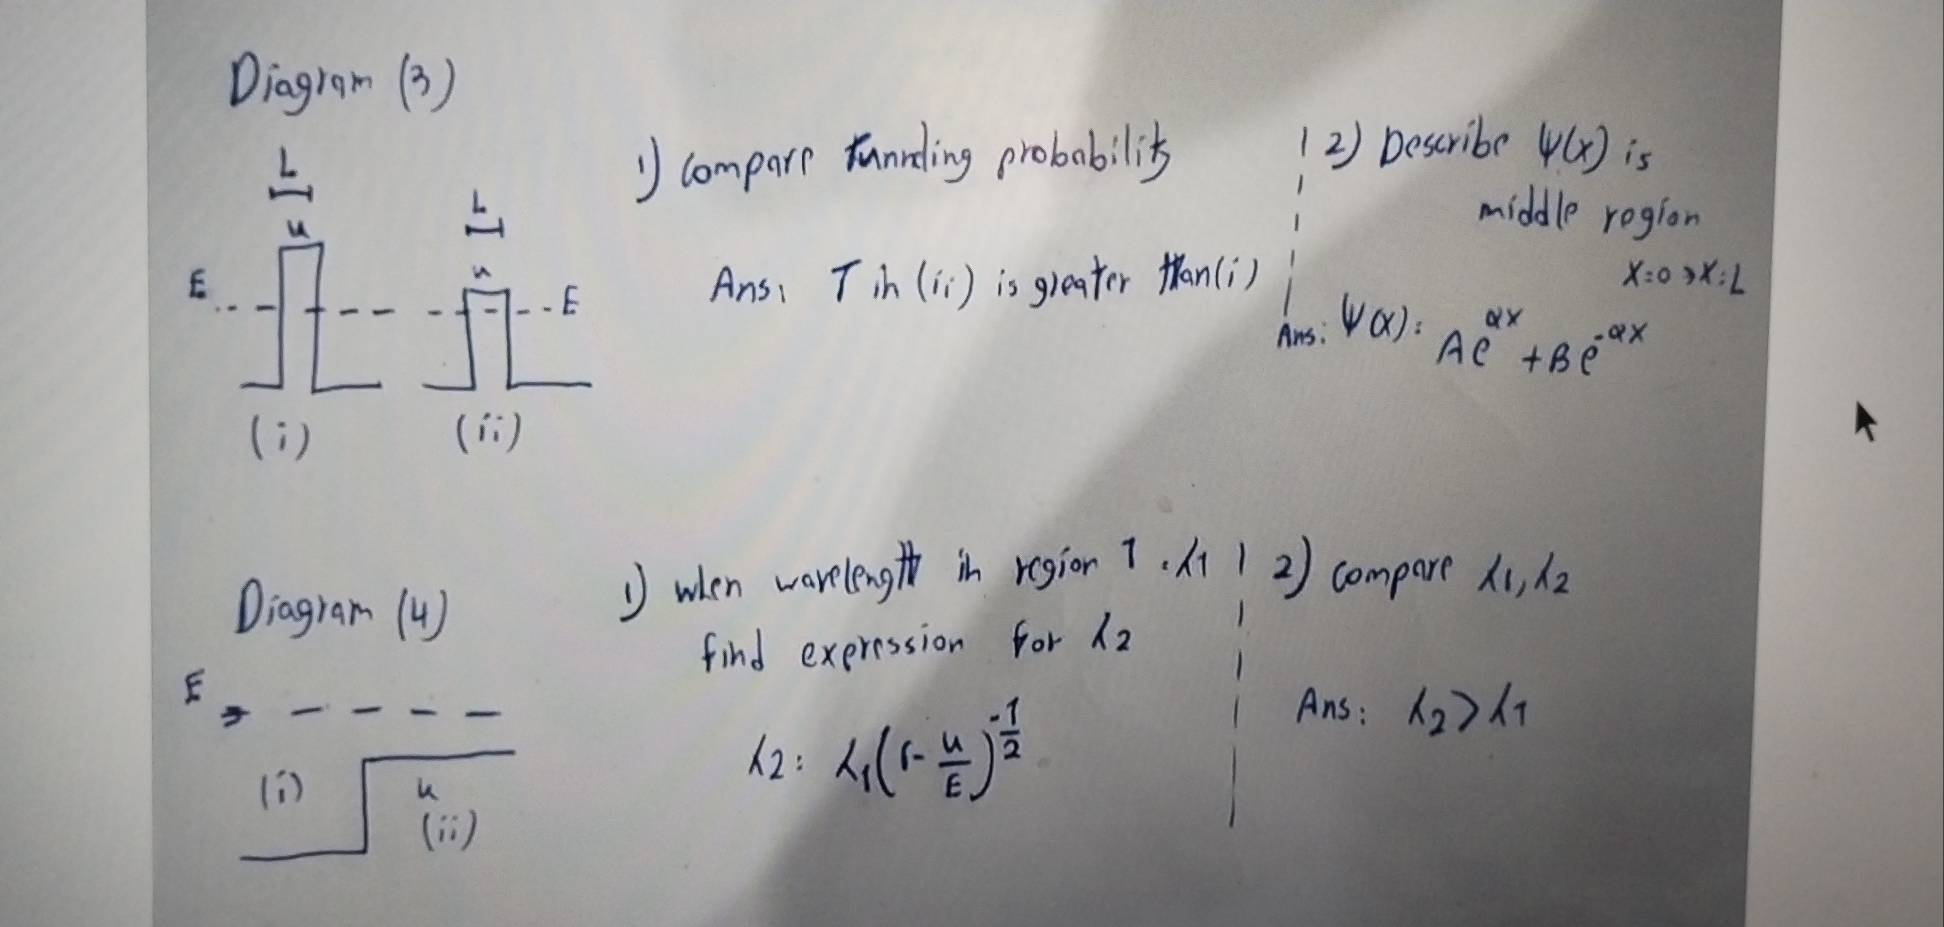 Diagram (3)
L
u
E
(i)
L
u
E
(ii)
1) compare tunneling probability
Ans: T in (ii) is greater than (i)
2) Describe ψ(x) is
middle region
x=0 → x=L
Ans: ψ(x): Ae^αx + Be^-αx
Diagram (4)
E
(i)
u
(ii)
1) when wavelength in region 1 : λ1
find expression for λ2
λ2: λ1(1-u/E)^-1/2
2) compare λ1, λ2
Ans: λ2 > λ1